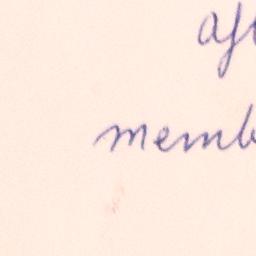 aft
memb